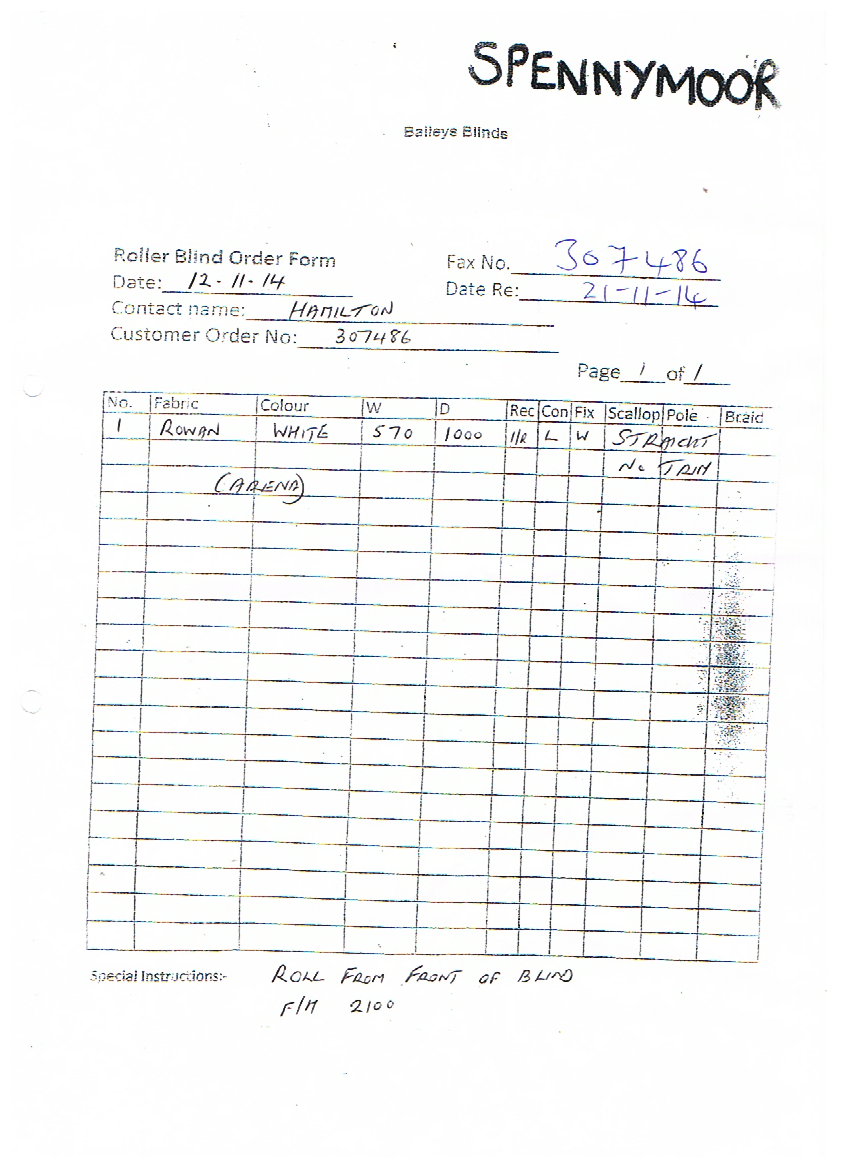 SPENNYMOOR
Baileys Blinds
Roller Blind Order Form
Fax No. 307486
Date: 12-11-14
Date Re: 21-11-14
Contact name: HAMILTON
Customer Order No: 307486
Page 1 of 1
No. Fabric Colour W D Rec Con Fix Scallop Pole Braid
1 ROWAN WHITE 570 1000 I/R L W STRAIGHT
No TRIM
(ARENA)
Special Instructions:- ROLL FROM FRONT OF BLIND
F/H 2100